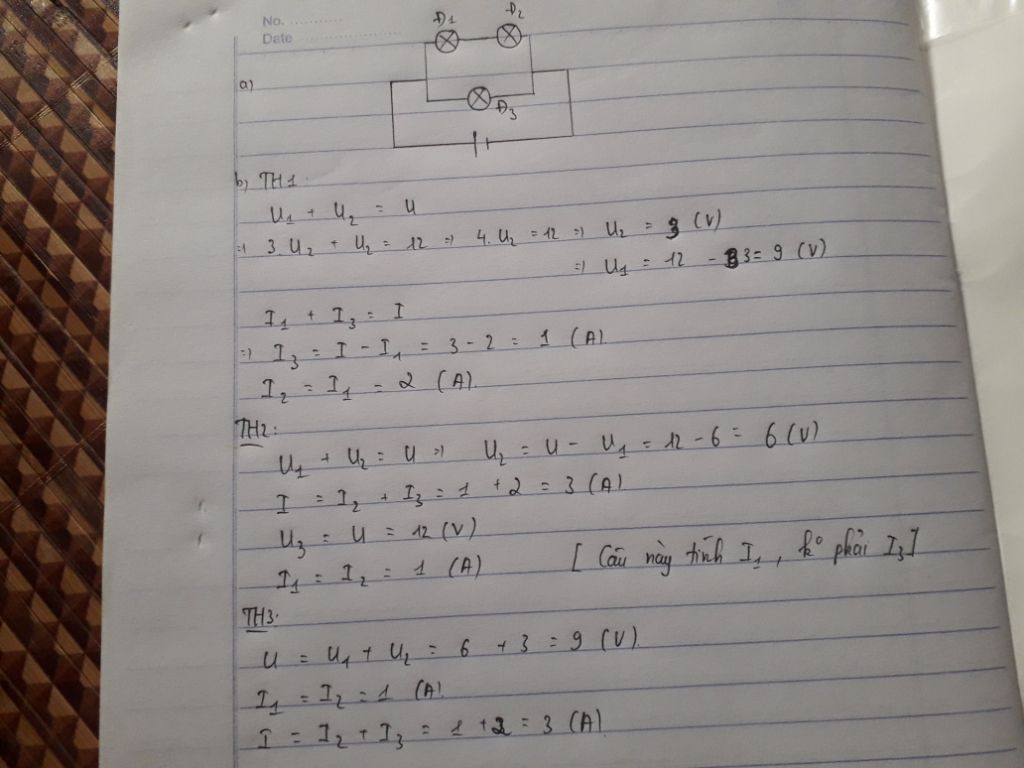 No. ............
Date ......................
Đ1 Đ2
a)
Đ3
b, TH1.
U₁ + U₂ = U
=) 3.U₂ + U₂ = 12 =) 4.U₂ = 12 =) U₂ = 3 (V)
=) U₁ = 12 - 3 = 9 (V)
I₁ + I₃ = I
=) I₃ = I - I₁ = 3 - 2 = 1 (A)
I₂ = I₁ = 2 (A).
TH2:
U₁ + U₂ = U =) U₂ = U - U₁ = 12 - 6 = 6 (V)
I = I₂ + I₃ = 1 + 2 = 3 (A)
U₃ = U = 12 (V)
I₁ = I₂ = 1 (A) [ Câu này tính I₁, k° phải I₃]
TH3:
U = U₁ + U₂ = 6 + 3 = 9 (V).
I₁ = I₂ = 1 (A).
I = I₂ + I₃ = 1 + 2 = 3 (A).